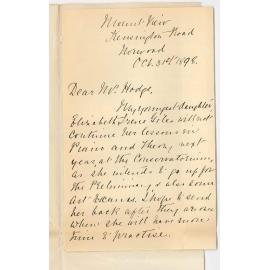 Mount View
Kensington Road
Norwood
Oct. 31st 1898.
Dear Mr. Hodge.
My youngest daughter
Elizabeth Irene Giles will not
continue her lessons in
Piano and Theory next
year, at the Conservatorium,
as she intends to go up for
the Preliminary & also some
Art Exams. I hope to send
her back after they are over
when she will have more
time to practise.